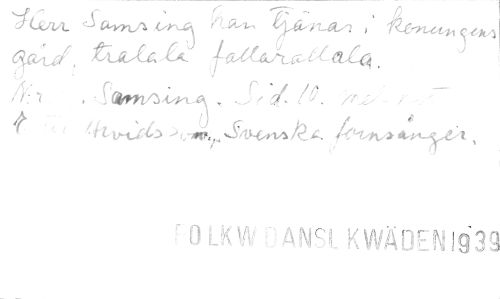 Herr Samsing han tjänar i konungens
gård, tralala fallarallala.
Nr Samsing. Sid. 10.
Arvidsson, Svenska fornsånger.
FOLKW DANSL KWÄDEN 1939